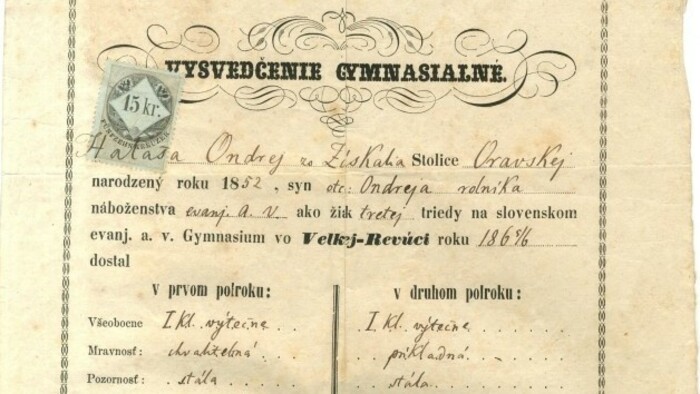 VYSVEDČENIE GYMNASIALNÉ.
15 kr.
Halaša Ondrej zo Stolice Oravskej
narodzený roku 1852, syn otc: Ondreja rolníka
náboženstva evanj. A. V. ako žiak tretej triedy na slovenskom
evanj. a. v. Gymnasium vo Velkej-Revúci roku 1865/6
dostal
v prvom polroku:
v druhom polroku:
Všeobecne I Kl. výtečne I Kl. výtečne
Mravnosť: chvalitebná príkladná
Pozornosť: stála stála